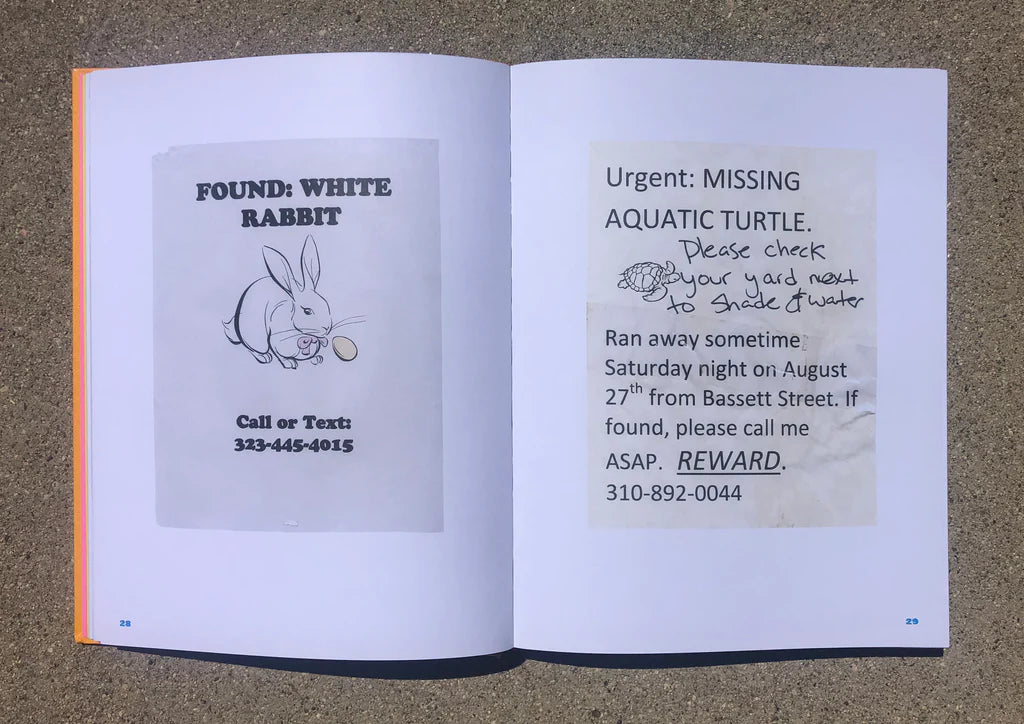 FOUND: WHITE
RABBIT
Call or Text:
323-445-4015
28
Urgent: MISSING
AQUATIC TURTLE.
Please check
your yard next
to shade & water
Ran away sometime
Saturday night on August
27th from Bassett Street. If
found, please call me
ASAP. REWARD.
310-892-0044
29